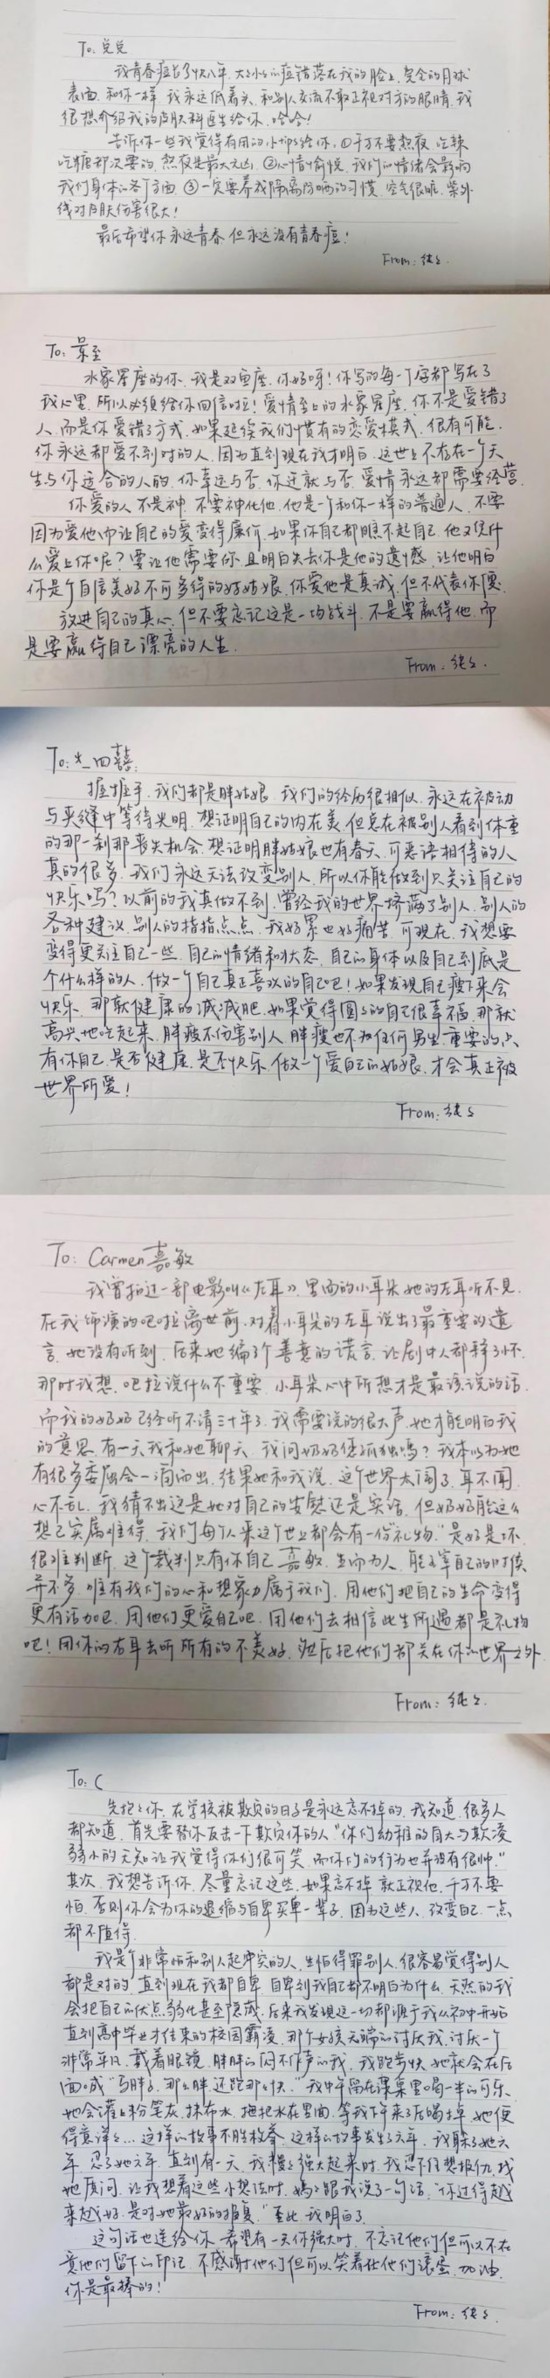 To: 兑兑
我青春痘长了快八年，大大小小的痘错落在我的脸上，完全的月球
表面，和你一样，我永远低着头，和别人交流不敢正视对方的眼睛，我
很想介绍我的皮肤科医生给你，哈哈！
告诉你一些我觉得有用的小tips给你，①千万不要熬夜，吃辣
吃糖都次要的，熬夜是最大元凶 ②心情愉悦，我们的情绪会影响
我们身体的各个方面 ③一定要养成隔离防晒的习惯，空气很脏，紫外
线对皮肤伤害很大！
最后希望你永远青春，但永远没有青春痘！
From: 纯纯
To: 景至
水象星座的你，我是双鱼座，你好呀！你写的每一个字都写在了
我心里，所以必须给你回信啦！爱情至上的水象星座，你不是爱错了
人，而是你爱错了方式，如果延续我们惯有的恋爱模式，很有可能
你永远都爱不到对的人，因为直到现在我才明白，这世上不存在一个天
生与你适合的人的，幸运与否，你这款与否，爱情永远都需要经营
你爱的人不是神，不要神化他，他是一个和你一样的普通人，不要
因为爱他而让自己的爱变得廉价，如果你自己都瞧不起自己，他又凭什
么爱上你呢？要让他需要你，且明白失去你是他的遗憾，让他明白
你是个自信美好不可多得的好姑娘，你爱他是真诚，但不代表你便
放进自己的真心，但不要忘记这是一场战斗，不是要赢得他，而
是要赢得自己漂亮的人生.
From. 纯纯.
To: 大_四囍:
握握手，我们都是胖姑娘，我们的经历很相似，永远在被动
与夹缝中等待光明，想证明自己的内在美，但总在被别人看到体重
的那一刹那丧失机会，想证明胖姑娘也有春天，可恶语相待的人
真的很多，我们永远无法改变别人，所以你能做到只关注自己的
快乐吗？以前的我真做不到，曾经我的世界挤满了别人，别人的
各种建议，别人的指指点点，我好累也好痛苦，可现在，我想要
变得更关注自己一些，自己的情绪和状态，自己的身体以及自己到底是
个什么样的人，做一个自己真正喜欢的自己吧！如果发现自己瘦下来会
快乐，那就健康的减减肥，如果觉得圆圆的自己很幸福，那就
高兴地吃起来，胖瘦不伤害别人，胖瘦也不为任何男生，重要的点
有你自己，是否健康，是否快乐，做一个爱自己的姑娘，才会真正被
世界所爱！
From: 纯纯
To: Carmen嘉敏
我曾拍过一部电影叫《左耳》，里面的小耳朵她的左耳听不见，
在我饰演的吧啦离世前，对着小耳朵的左耳说出了最重要的遗
言，她没有听到，后来她编了个善意的谎言，让剧中人都释了怀
那时我想，吧拉说什么不重要，小耳朵心中所想才是最该说的话，
而我的奶奶已经听不清三十年了，我需要说的很大声，她才能明白我
的意思，有一天我和她聊天，我问奶奶您孤独吗？我本以为她
有很多委屈会一涌而出，结果她和我说，这个世界太闹了，耳不闻，
心不乱，我猜不出这是她对自己的安慰还是实话，但奶奶能这么
想已实属难得，我们每个人来这个世上都会有一份"礼物"，是好是坏
很难判断，这个裁判只有你自己，嘉敏，生而为人，能主宰自己的时候
并不多，唯有我们的心和想象力属于我们，用他们把自己的生命变得
更有活力吧，用他们更爱自己吧，用他们去相信此生所遇都是礼物
吧！用你的右耳去听所有的不美好，然后把他们都关在你的世界之外
From: 纯纯.
To: C
先抱抱你，在学校被欺负的日子是永远忘不掉的，我知道，很多人
都知道，首先要替你反击一下欺负你的人"你们幼稚的自大与欺凌
弱小的无知让我觉得你们很可笑，而你们的行为也并没有很帅."
其次，我想告诉你，尽量忘记这些，如果忘不掉，就正视他，千万不要
怕，否则你会为你的退缩与自卑买单一辈子，因为这些人，改变自己，一点
都不值得.
我是个非常怕和别人起冲突的人，生怕得罪别人，很容易觉得别人
都是对的，直到现在我都自卑，自卑到我自己都不明白为什么，天然的我
会把自己的优点弱化甚至隐藏，后来我发现这一切都源于我从初中开始
直到高中毕业才结束的校园霸凌，那个女孩无端的讨厌我，讨厌一个
非常平凡，戴着眼镜，胖胖的闷不作声的我，我跑步快，她就会在后
面喊"马胖子，那么胖还跑那么快."我中午留在课桌里喝一半的可乐，
她会灌上粉笔灰，抹布水，拖把水在里面，等我下午来了后喝掉，她便
得意洋洋... 这样的故事不胜枚举，这样的故事发生了六年，我躲了她六
年，忍了她六年，直到有一天，我慢慢强大起来时，我忍不住想报仇，找
她质问，让我想着这些小想法时，妈妈跟我说了一句话，"你过得越
来越好，是对她最好的报复."至此，我明白了.
这句话也送给你，希望有一天你强大时，不忘记他们但可以不在
意他们留下的印记，不感谢他们但可以笑着让他们滚蛋，加油，
你是最棒的！
From: 纯纯.